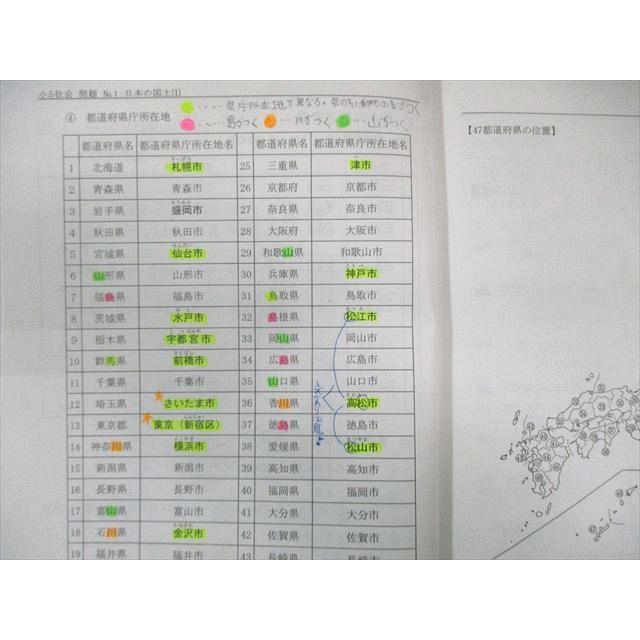 小5社会 問題 No.1 日本の国土(1)
④ 都道府県庁所在地
‥‥県庁所在地が異なる。
‥‥島がつく ‥‥川がつく ‥‥山がつく
【47都道府県の位置】
都道府県名 都道府県庁所在地名 都道府県名 都道府県庁所在地名
1 北海道 札幌市 25 三重県 津市
2 青森県 青森市 26 京都府 京都市
3 岩手県 盛岡市 27 奈良県 奈良市
4 秋田県 秋田市 28 大阪府 大阪市
5 宮城県 仙台市 29 和歌山県 和歌山市
6 山形県 山形市 30 兵庫県 神戸市
7 福島県 福島市 31 鳥取県 鳥取市
8 茨城県 水戸市 32 島根県 松江市
9 栃木県 宇都宮市 33 岡山県 岡山市
10 群馬県 前橋市 34 広島県 広島市
11 千葉県 千葉市 35 山口県 山口市
12 埼玉県 さいたま市 36 香川県 高松市
13 東京都 東京（新宿区） 37 徳島県 徳島市
14 神奈川県 横浜市 38 愛媛県 松山市
15 新潟県 新潟市 39 高知県 高知市
16 長野県 長野市 40 福岡県 福岡市
17 富山県 富山市 41 大分県 大分市
18 石川県 金沢市 42 佐賀県 佐賀市
19 福井県 福井市 43 長崎県 長崎市